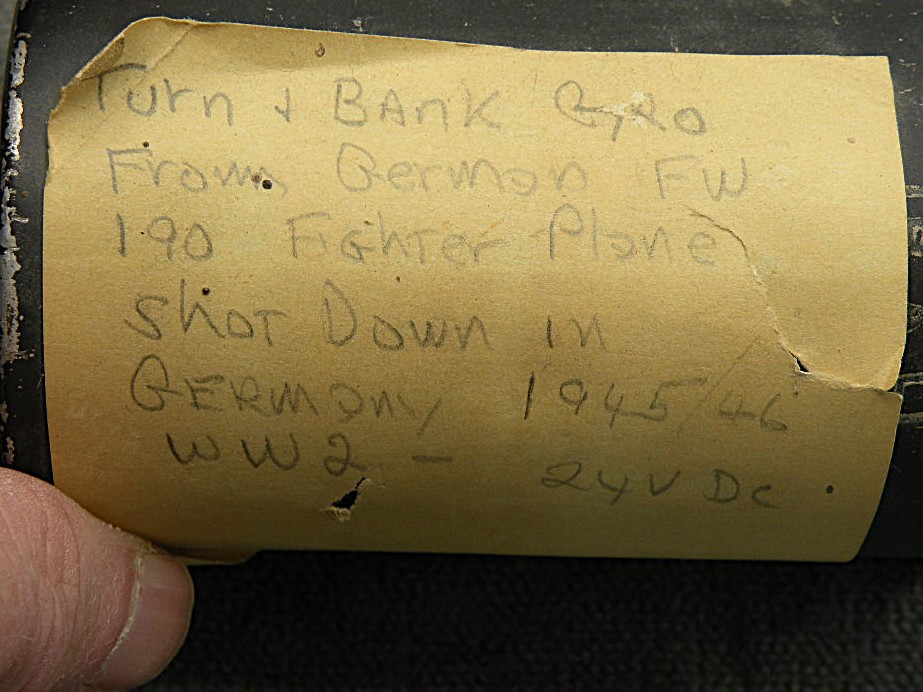 Turn + BAnk Gyro
From German FW
190 FIGHTer Plane
SHOT Down in
GERMany 1945/46
WW2 - 24V DC